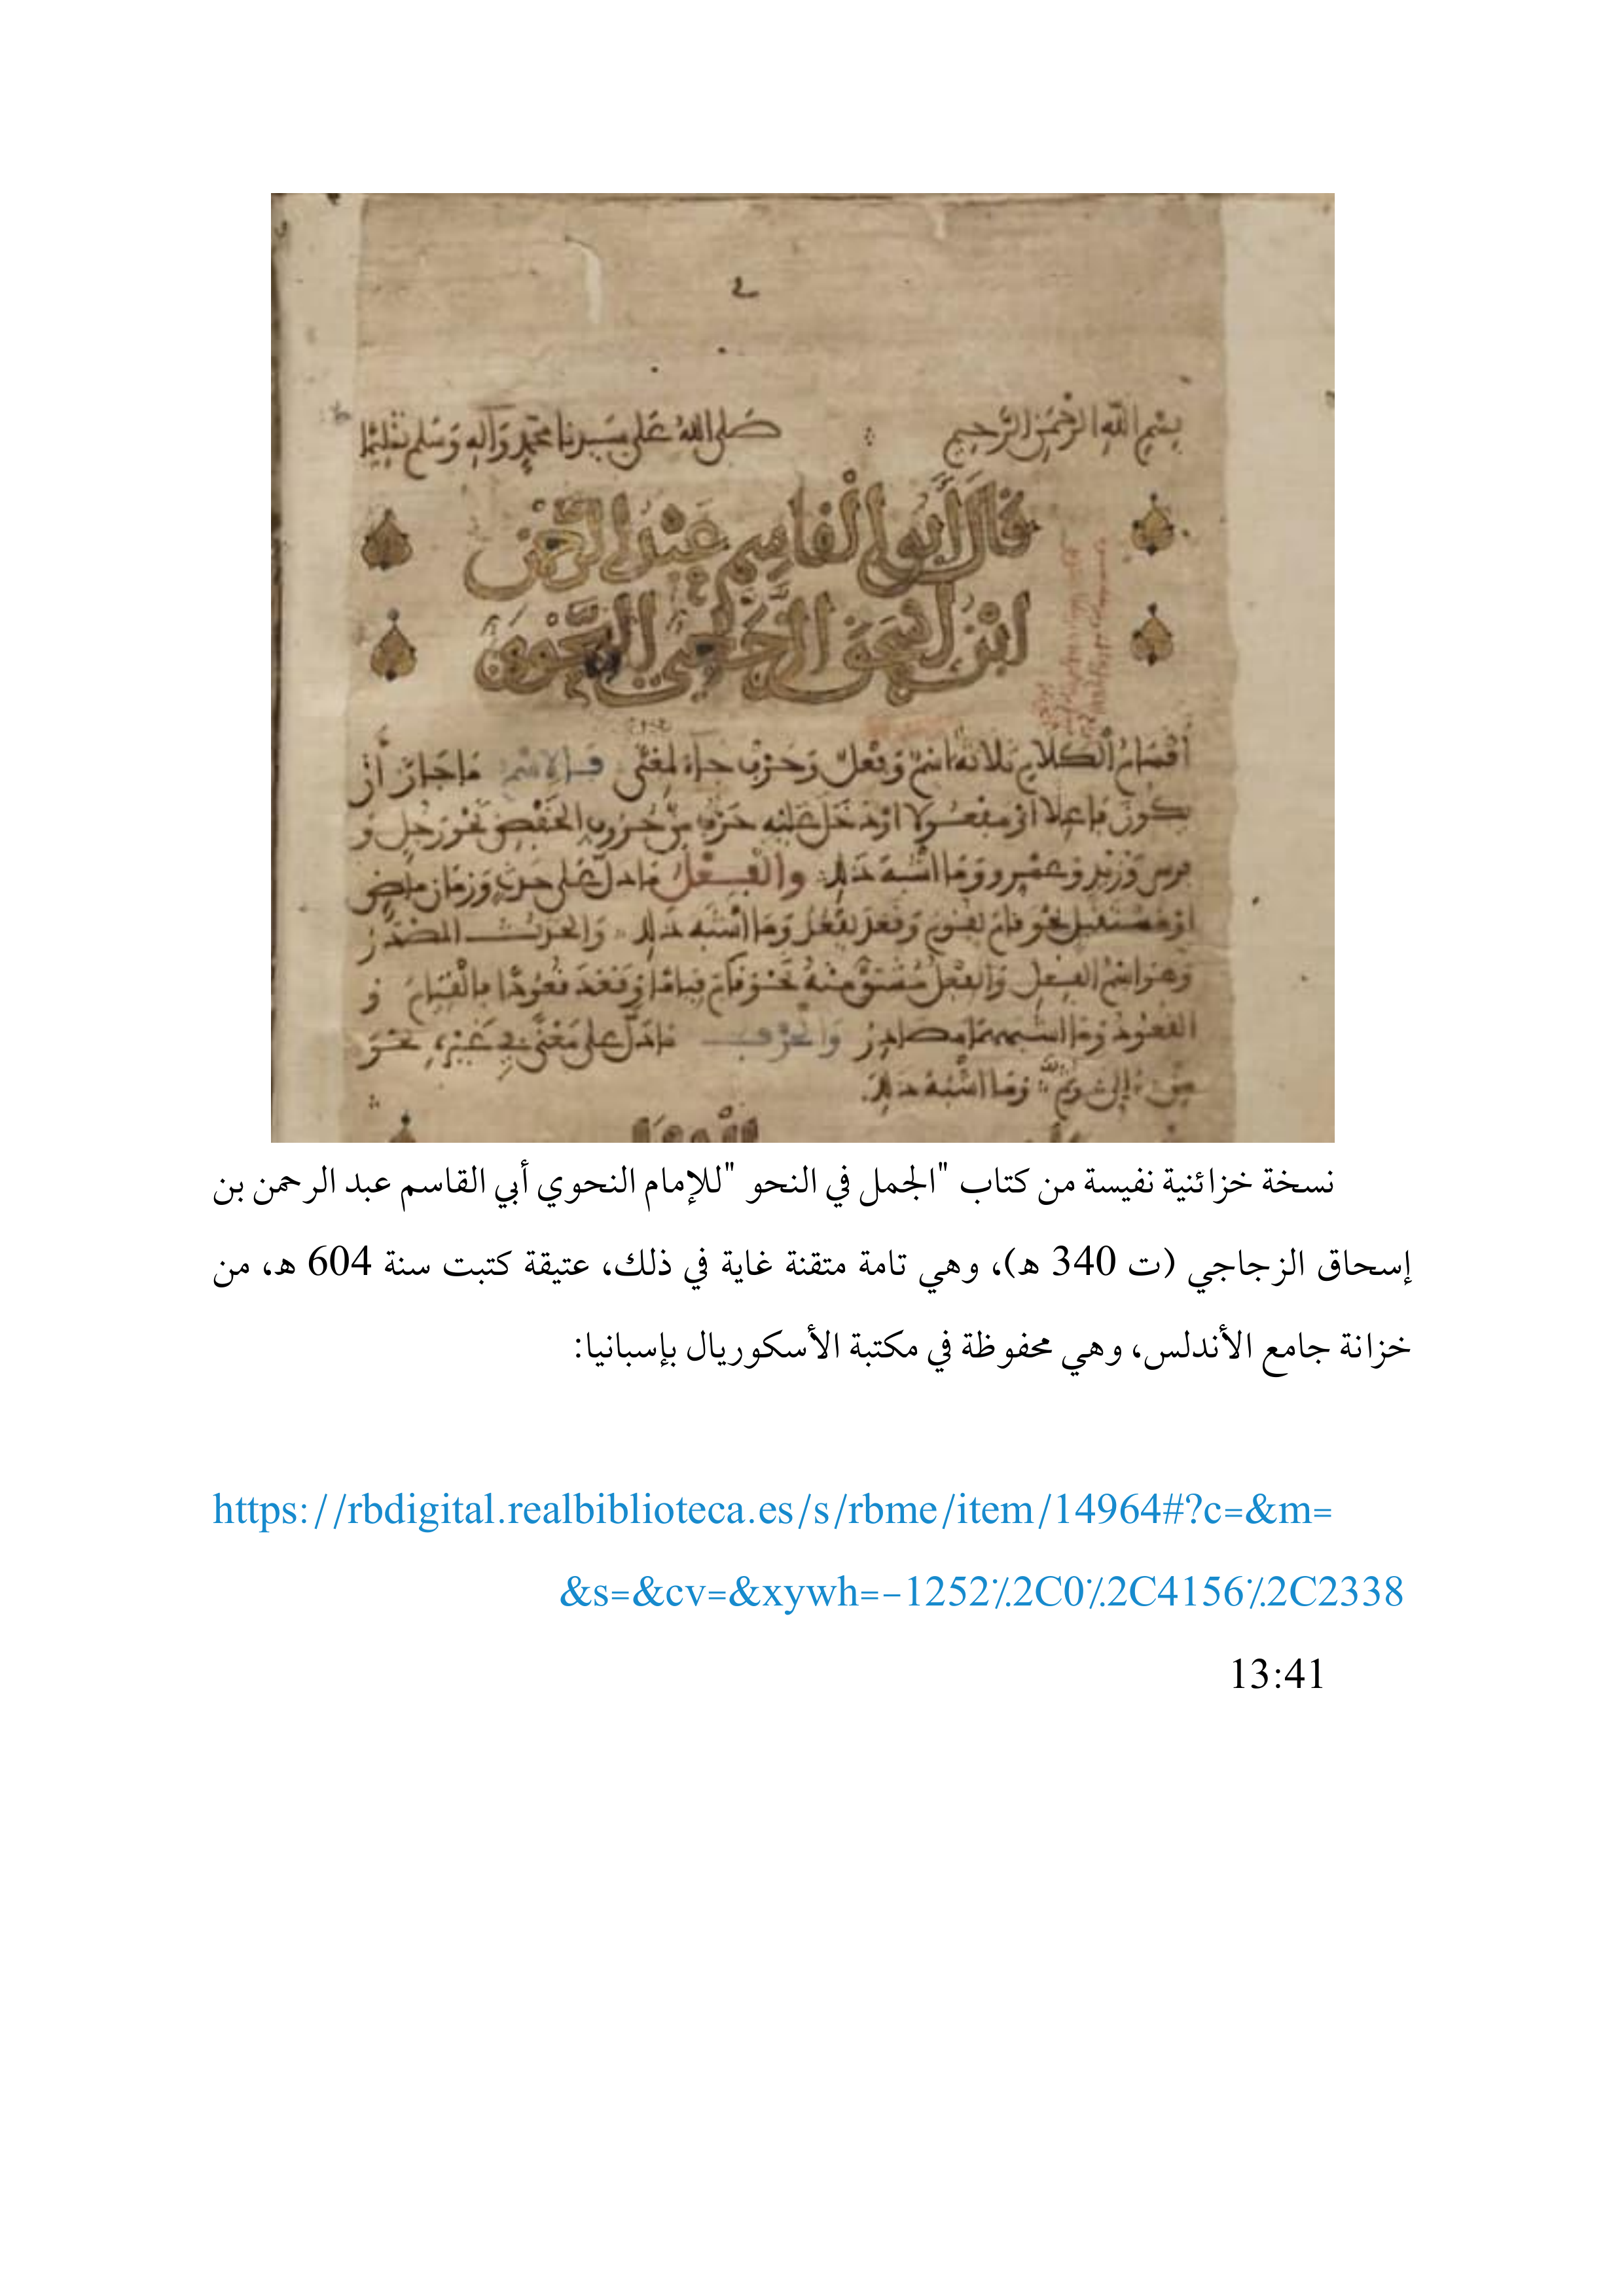 بسم الله الرحمن الرحيم صلى الله على سيدنا محمد وآله وسلم تسليما
قال أبو القاسم عبد الرحمن
ابن إسحق الزجاجي النحوي
أقسام الكلام ثلاثة اسم وفعل وحرف جاء لمعنى فالاسم ما جاز أن
يكون فاعلا أو مفعولا أو دخل عليه حرف من حروف الخفض نحو رجل و
فرس وزيد وعمرو وما أشبه ذلك والفعل ما دل على حدث وزمان ماض
أو مستقبل نحو قام يقوم وقعد يقعد وما أشبه ذلك والحدث المصدر
وهو اسم الفعل والفعل مشتق منه نحو قام قياما وقعد قعودا فالقيام و
القعود وما أشبههما مصادر والحرف ما دل على معنى في غيره نحو
من وإلى وثم وما أشبه ذلك
نسخة خزائنية نفيسة من كتاب "الجمل في النحو "للإمام النحوي أبي القاسم عبد الرحمن بن
إسحاق الزجاجي (ت 340 ه)، وهي تامة متقنة غاية في ذلك، عتيقة كتبت سنة 604 ه، من
خزانة جامع الأندلس، وهي محفوظة في مكتبة الأسكوريال بإسبانيا:
https://rbdigital.realbiblioteca.es/s/rbme/item/14964#?c=&m=
&s=&cv=&xywh=-1252%2C0%2C4156%2C2338
13:41